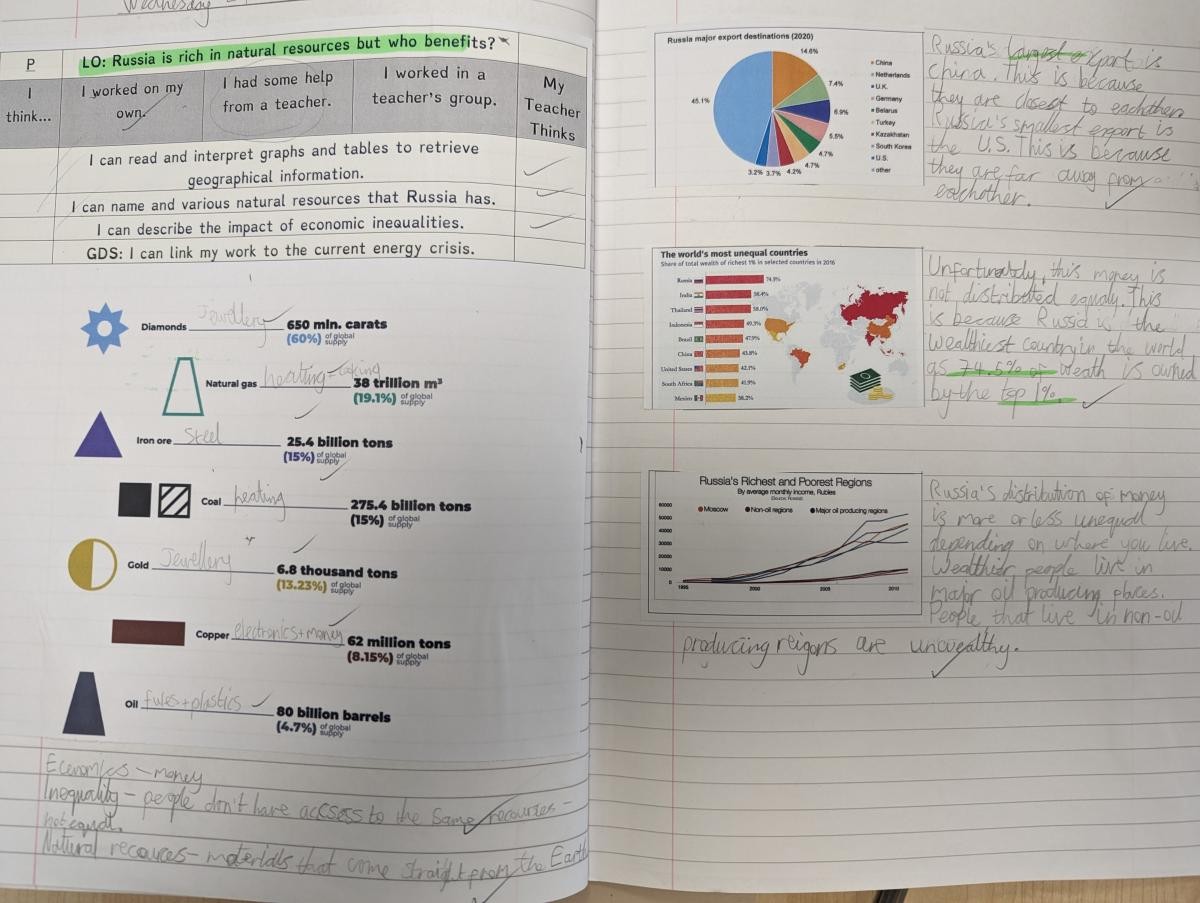 Wednesday
P
LO: Russia is rich in natural resources but who benefits?
I think...
I worked on my own.
I had some help from a teacher.
I worked in a teacher's group.
My Teacher Thinks
I can read and interpret graphs and tables to retrieve
geographical information.
I can name and various natural resources that Russia has.
I can describe the impact of economic inequalities.
GDS: I can link my work to the current energy crisis.
Diamonds Jewellery 650 mln. carats
(60%) of global supply
Natural gas heating + 38 trillion m³
(19.1%) of global supply
Iron ore Steel 25.4 billion tons
(15%) of global supply
Coal heating 275.4 billion tons
(15%) of global supply
Gold Jewellery 6.8 thousand tons
(13.23%) of global supply
Copper electronics + money 62 million tons
(8.15%) of global supply
Oil fules + plastics 80 billion barrels
(4.7%) of global supply
Economics - money
Inequality - people don't have accsess to the same recources -
not equal.
Natural recources - materials that come straight from the Earth
Russia major export destinations (2020)
14.6%
7.4%
6.9%
5.5%
4.7%
4.7%
4.2%
3.7%
3.2%
45.1%
China
Netherlands
U.K.
Germany
Belarus
Turkey
Kazakhstan
South Korea
U.S.
other
Russia's largest export is
China. This is because
they are closest to eachother.
Russia's smallest export is
the U.S. This is because
they are far away from
eachother.
The world's most unequal countries
Share of total wealth of richest 1% in selected countries in 2016
Russia 74.5%
India 58.4%
Thailand 58.0%
Indonesia 49.3%
Brazil 47.9%
China 43.8%
United States 42.1%
South Africa 41.9%
Mexico 38.2%
Unfortunately, this money is
not distributed equally. This
is because Russia is the
wealthiest country in the world
as 74.5% of weath is owned
by the top 1%.
Russia's Richest and Poorest Regions
By average monthly income, Rubles
Moscow
Non-oil regions
Major oil producing regions
60000
50000
40000
30000
20000
10000
0
1995
2000
2005
2010
Russia's distribution of money
is more or less unequal
depending on where you live.
Wealthier people live in
major oil producing places.
People that live in non-oil
producing reigons are unwealthy.